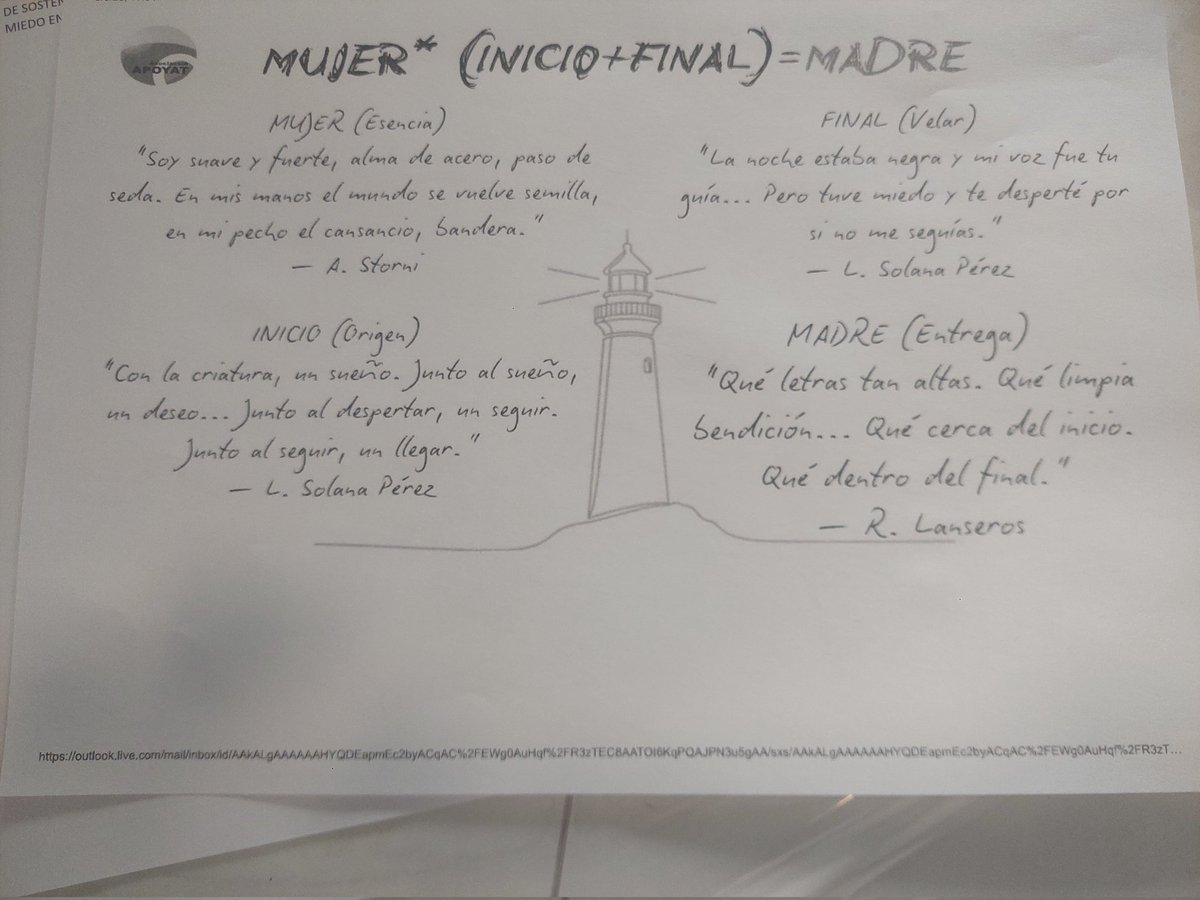 DE SOSTEN
MIEDO EN
APOYAT
MUJER* (INICIO+FINAL)=MADRE
MUJER (Esencia)
"Soy suave y fuerte, alma de acero, paso de
seda. En mis manos el mundo se vuelve semilla,
en mi pecho el cansancio, bandera."
— A. Storni
INICIO (Origen)
"Con la criatura, un sueño. Junto al sueño,
un deseo... Junto al despertar, un seguir.
Junto al seguir, un llegar."
— L. Solana Pérez
FINAL (Velar)
"La noche estaba negra y mi voz fue tu
guía... Pero tuve miedo y te desperté por
si no me seguías."
— L. Solana Pérez
MADRE (Entrega)
"Qué letras tan altas. Qué limpia
bendición... Qué cerca del inicio.
Qué dentro del final."
— R. Lanseros